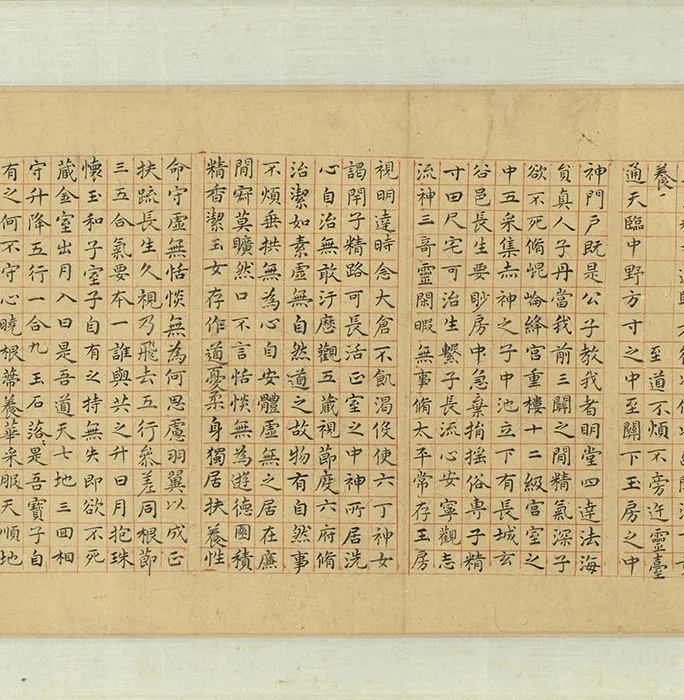 養一 至道不煩不旁迕靈臺
通天臨中野方寸之中至關下玉房之中
神門戶既是公子教我者明堂四達法海
負真人子丹當我前三關之間精氣深子
欲不死脩崐崘絳宮重樓十二級宮室之
中五采集赤神之子中池立下有長城玄
谷邑長生要眇房中急棄捐揺俗專子精
寸田尺宅可治生繫子長流心安寧觀志
流神三哥靈閑暇無事脩太平常存玉房
視明達時念大倉不飢渴伇使六丁神女
謁閇子精路可長活正室之中神所居洗
心自治無敢汙歷觀五蔵視節度六府脩
治潔如素虛無自然道之故物有自然事
不煩垂拱無為心自安體虛無之居在廉
閒寂莫曠然口不言恬惔無為遊德園積
精香潔玉女存作道憂柔身獨居扶養性
命守虛無恬惔無為何思慮羽翼以成正
扶疏長生久視乃飛去五行叅差同根節
三五合氣要本一誰與共之升日月抱珠
懷玉和子室子自有之持無失即欲不死
蔵金室出月入日是吾道天七地三回相
守升降五行一合九玉石落〻是吾寶子自
有之何不守心曉根蔕養華采服天順地